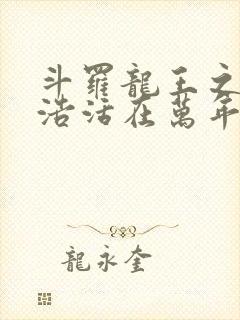 斗羅龍王之
浩活在萬年
龍永奎